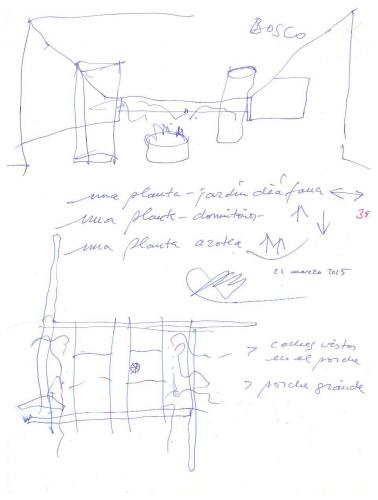 BOSCO
una planta - jardín diáfana
una planta - dormitorios -
39
una planta azotea
22 marzo 2015
coches vistos
en el porche
porche grande